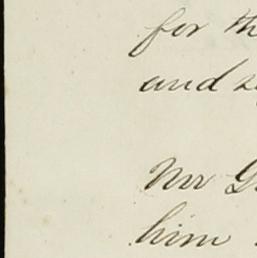 for th
and s
Mr G
him